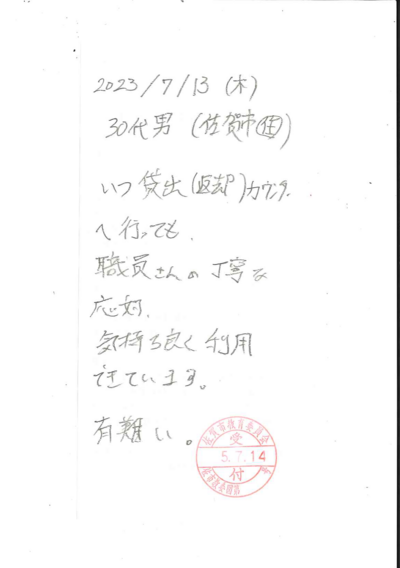 2023/7/13 (木)
30代男 (佐賀市住)
いつ貸出(返却)カウンター
へ行っても、
職員さんの丁寧な
応対、
気持ち良く利用
できています。
有難い。
佐賀市教育委員会
受
5.7.14
付